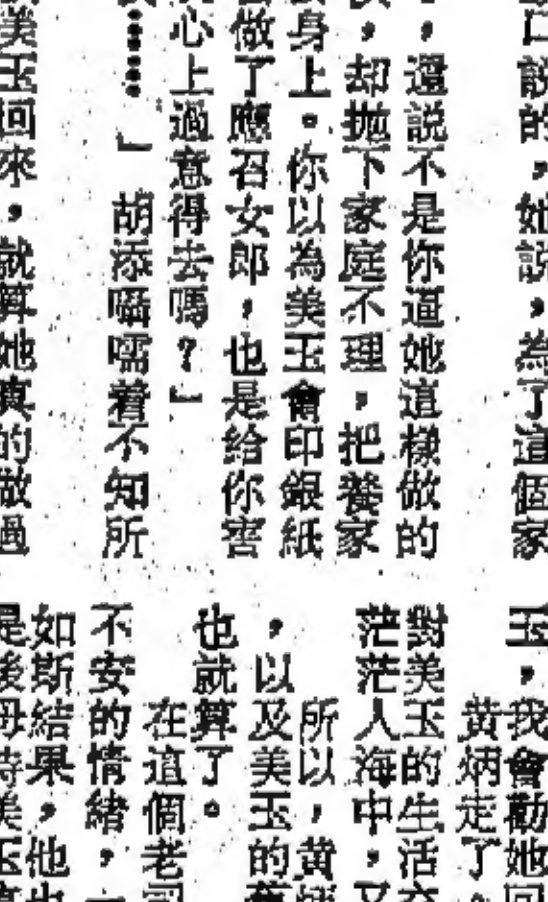 口說的，她說，為了這個家
，還說不是你逼她這樣做的
，却抛下家庭不理，把養家
身上。你以為美玉會印銀紙
做了應召女郎，也是给你害
心上過意得去嗎？」
……」　胡添囁嚅着不知所
美玉回來，就算她真的做過
玉，我會勸她回
黄炳走了。
對美玉的生活
茫茫人海中，又
所以，黄炳
，以及美玉的
也就算了。
在這個老
不安的情緒，一
如斯結果，他也
是後母待美玉